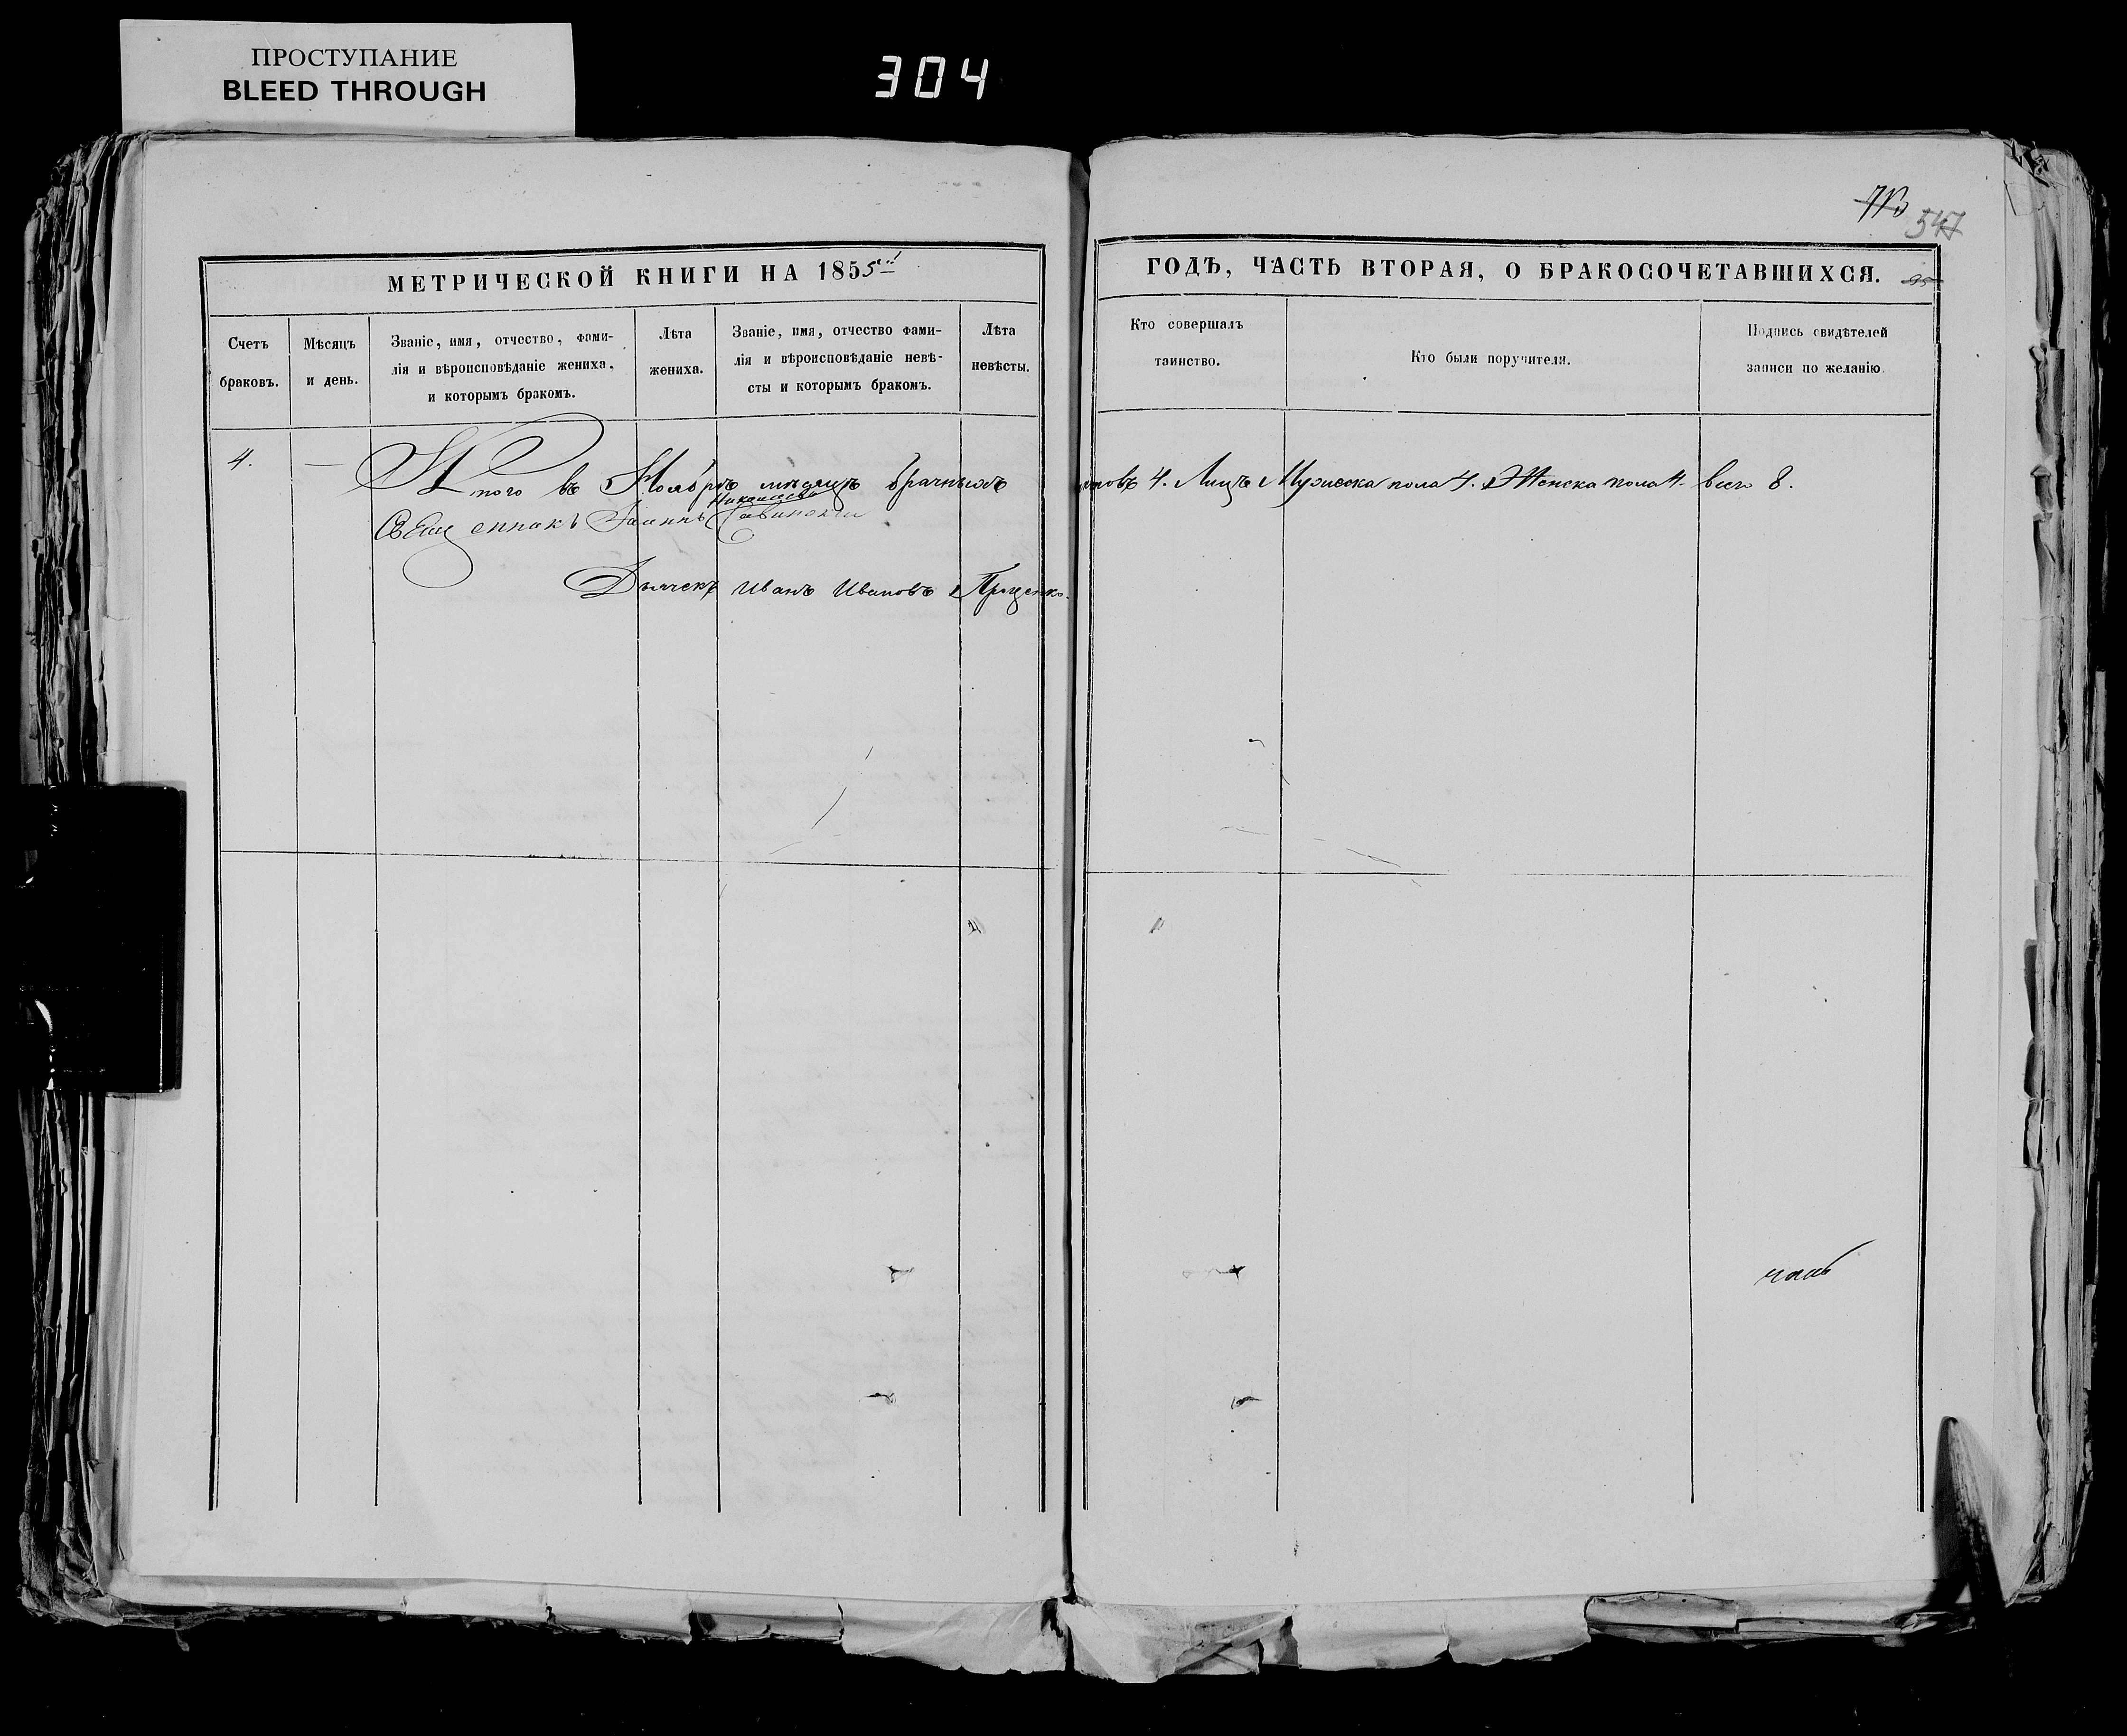 ПРОСТУПАНИЕ
BLEED THROUGH
304
547
МЕТРИЧЕСКОЙ КНИГИ НА 1855й
ГОДЪ, ЧАСТЬ ВТОРАЯ, О БРАКОСОЧЕТАВШИХСЯ.
95
Счетъ
браковъ.
Мѣсяцъ
и день.
Званіе, имя, отчество, фами-
лія и вѣроисповѣданіе жениха,
и которымъ бракомъ.
Лѣта
жениха.
Званіе, имя, отчество фами-
лія и вѣроисповѣданіе невѣ-
сты и которымъ бракомъ.
Лѣта
невѣсты.
Кто совершалъ
таинство.
Кто были поручители.
Подпись свидѣтелей
записи по желанію.
4. — Итого въ Ноябрѣ мѣсяцѣ брачныхъ
4. Лицъ Мужеска пола 4. Женска пола 4. всего 8.
Священникъ Іоаннъ Савинскій
Дьячекъ Иванъ Ивановъ Проценко.
часть